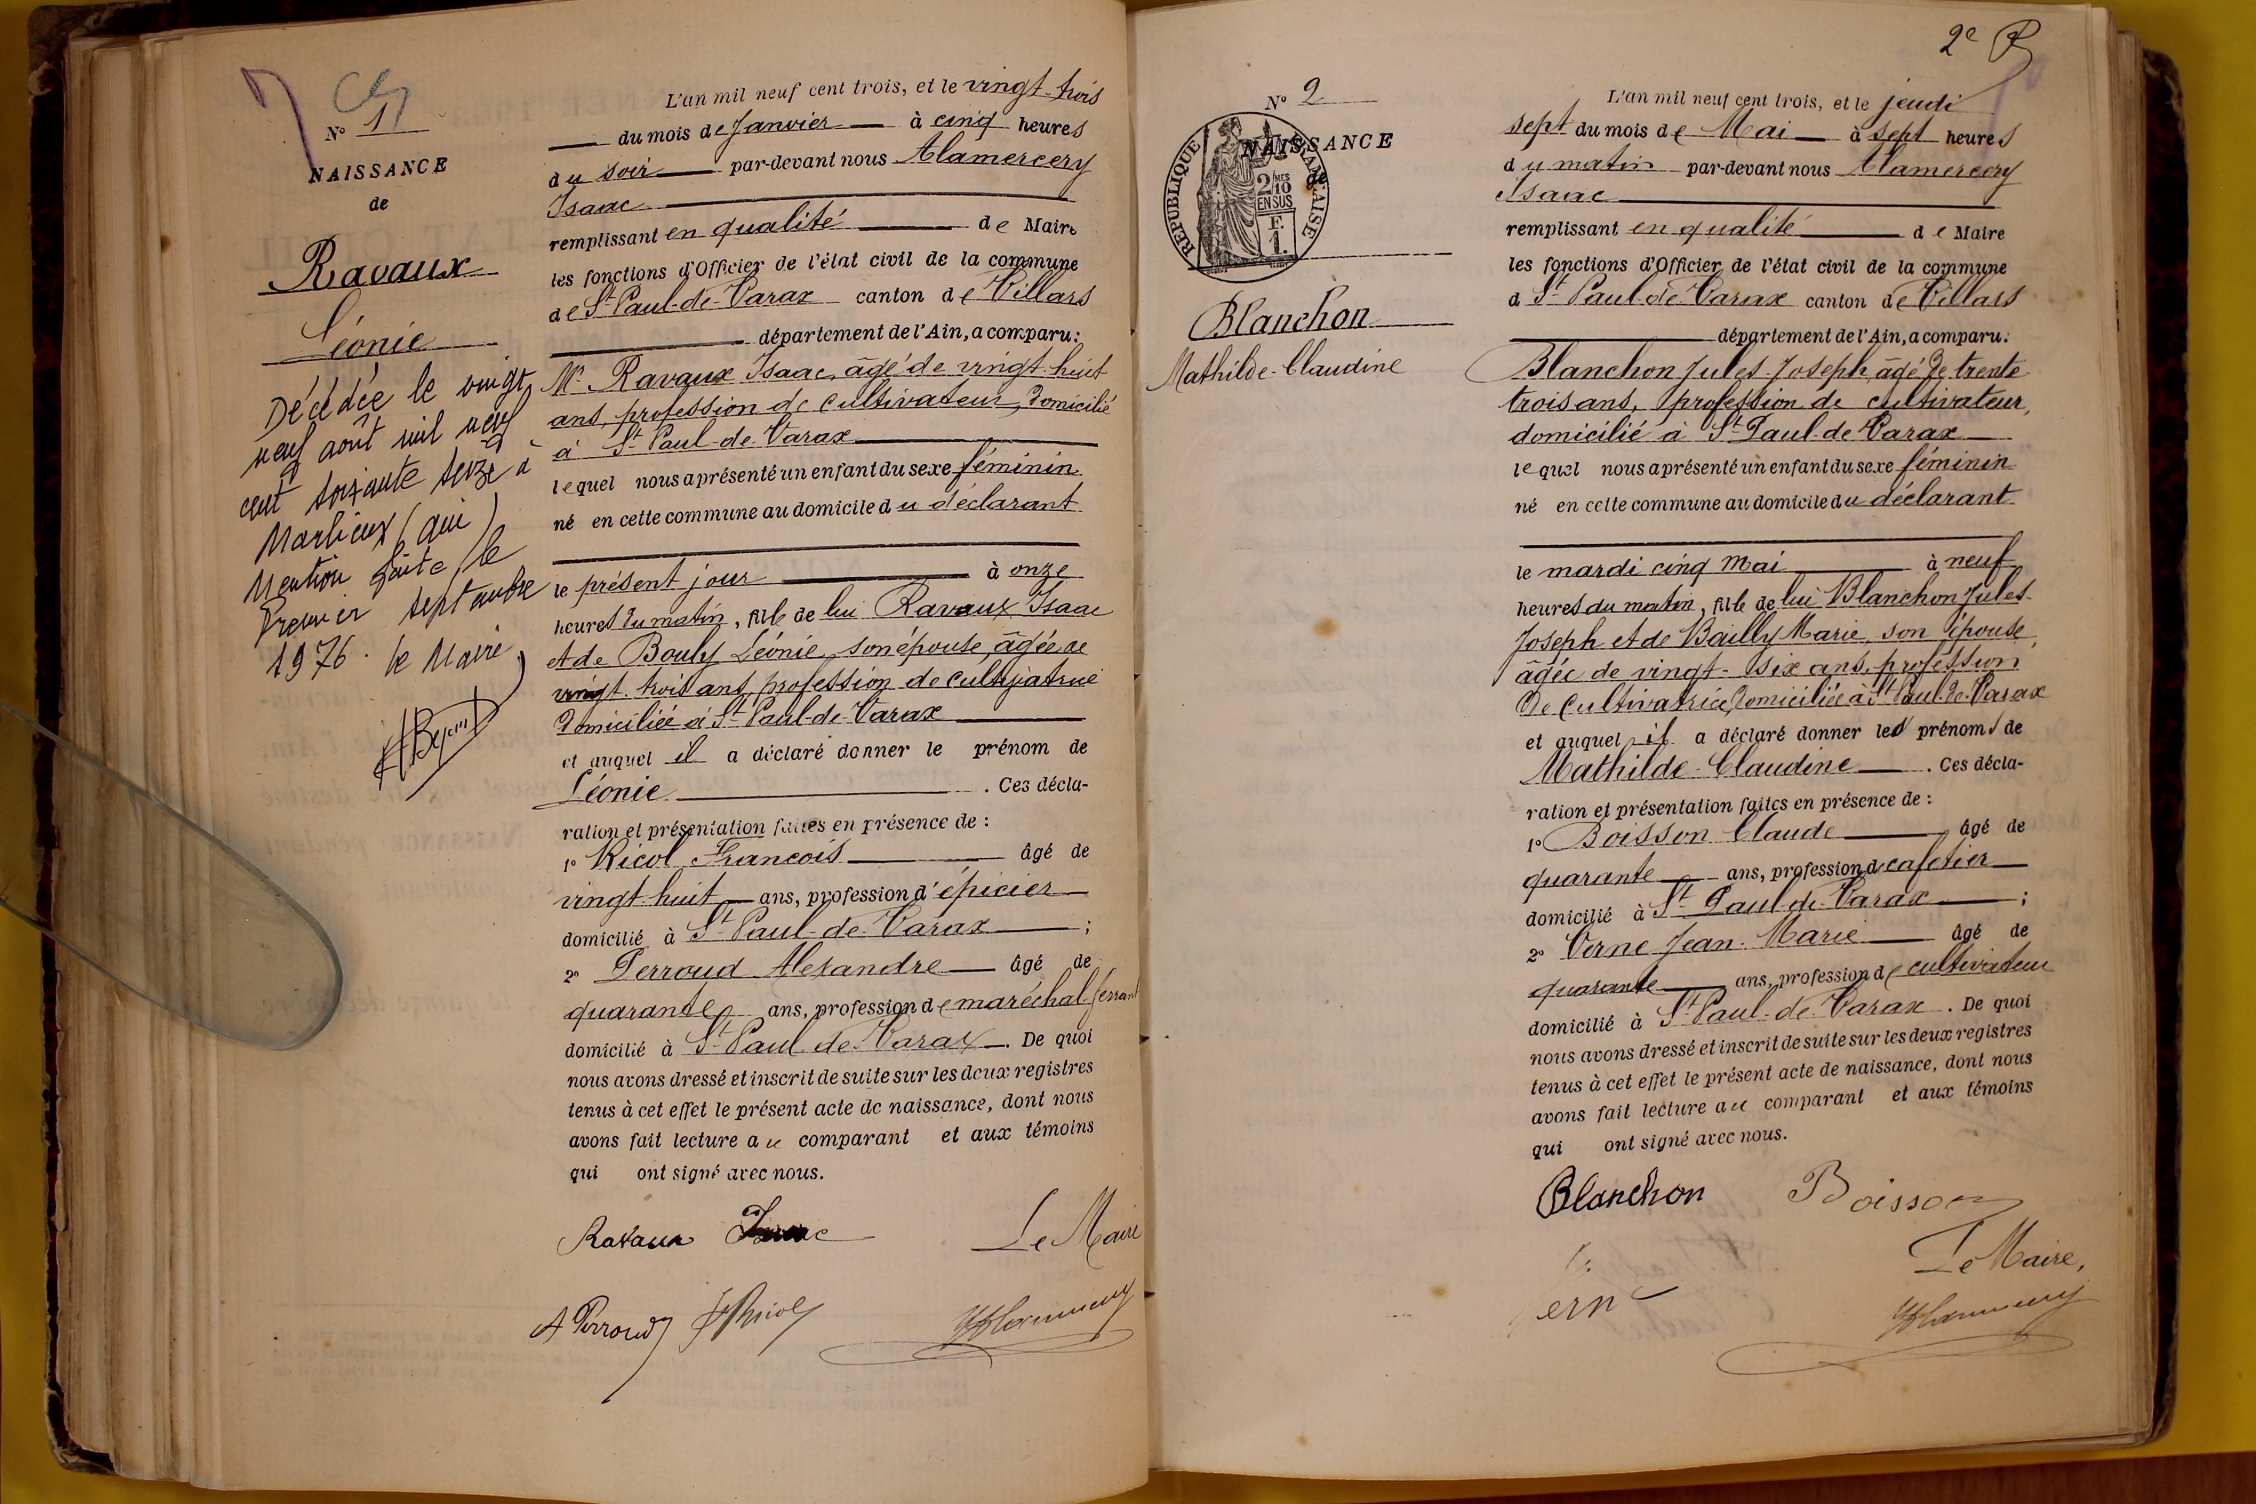 Nº 1
NAISSANCE
de
Ravaux
Léonie
Décédée le vingt
neuf août mil neuf
cent soixante seize à
Marlieux (ain)
Mention faite le
Premier septembre
1976. le Maire
L'an mil neuf cent trois, et le vingt-trois
du mois de Janvier à cinq heures
du soir par-devant nous Alamercery
Isaac
remplissant en qualité de Maire
les fonctions d'Officier de l'état civil de la commune
de St Paul-de-Varax canton de Villars
département de l'Ain, a comparu:
Mr Ravaux Isaac, âgé de vingt-huit
ans, profession de cultivateur, domicilié
à St Paul-de-Varax
lequel nous a présenté un enfant du sexe féminin
né en cette commune au domicile du déclarant
le présent jour à onze
heures du matin, fille de lui Ravaux Isaac
et de Bouly Léonie, son épouse, âgée de
vingt-trois ans, profession de cultivatrice
domiciliée à St Paul-de-Varax
et auquel il a déclaré donner le prénom de
Léonie. Ces décla-
ration et présentation faites en présence de :
1º Ricol François âgé de
vingt-huit ans, profession d'épicier
domicilié à St Paul-de-Varax ;
2º Perroud Alexandre âgé de
quarante ans, profession de maréchal-ferrant
domicilié à St Paul-de-Varax. De quoi
nous avons dressé et inscrit de suite sur les deux registres
tenus à cet effet le présent acte de naissance, dont nous
avons fait lecture au comparant et aux témoins
qui ont signé avec nous.
Ravaux Isaac Le Maire
A Perroud Ricol
2e
Nº 2
NAISSANCE
de
RÉPUBLIQUE FRANÇAISE
2/10 MES
EN SUS
F.
1.
Blanchon
Mathilde-Claudine
L'an mil neuf cent trois, et le jeudi
sept du mois de Mai à sept heures
du matin par-devant nous Alamercery
Isaac
remplissant en qualité de Maire
les fonctions d'Officier de l'état civil de la commune
d St Paul-de-Varax canton de Villars
département de l'Ain, a comparu:
Blanchon Jules-Joseph, âgé de trente
trois ans, profession de cultivateur,
domicilié à St Paul-de-Varax
lequel nous a présenté un enfant du sexe féminin
né en cette commune au domicile du déclarant
le mardi cinq Mai à neuf
heures du matin, fille de lui Blanchon Jules-
Joseph et de Bailly Marie, son épouse,
âgée de vingt-six ans, profession
de cultivatrice, domiciliée à St Paul-de-Varax
et auquel il a déclaré donner les prénoms de
Mathilde-Claudine. Ces décla-
ration et présentation faites en présence de :
1º Boisson Claude âgé de
quarante ans, profession de cafetier
domicilié à St Paul-de-Varax ;
2º Verne Jean-Marie âgé de
quarante ans, profession de cultivateur
domicilié à St Paul-de-Varax. De quoi
nous avons dressé et inscrit de suite sur les deux registres
tenus à cet effet le présent acte de naissance, dont nous
avons fait lecture au comparant et aux témoins
qui ont signé avec nous.
Blanchon Boisson
Le Maire,